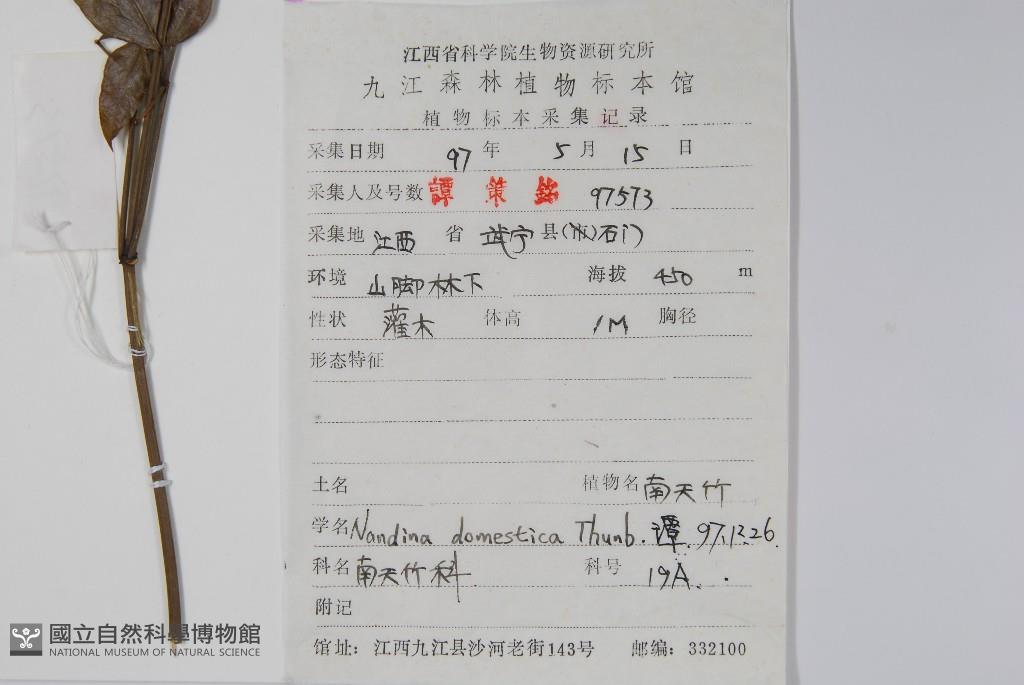 江西省科学院生物资源研究所
九江森林植物标本馆
植物标本采集记录
采集日期 97 年 5 月 15 日
采集人及号数 譚策铭 97573
采集地 江西 省 武宁 县(市)石门
环境 山脚林下 海拔 450 m
性状 灌木 体高 1M 胸径
形态特征
土名 植物名 南天竹
学名 Nandina domestica Thunb. 谭. 97.12.26.
科名 南天竹科 科号 19A.
附记
馆址：江西九江县沙河老街143号 邮编：332100
國立自然科學博物館
NATIONAL MUSEUM OF NATURAL SCIENCE